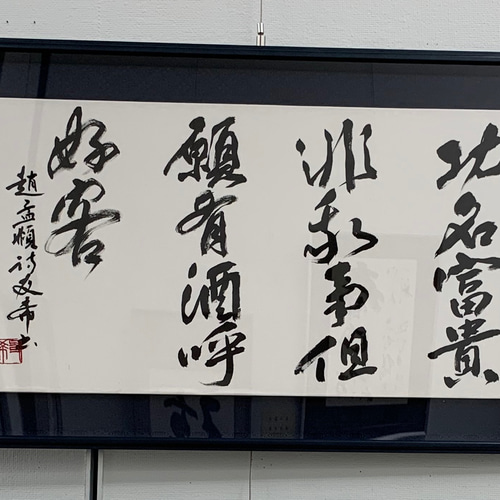 功名富貴
非我事但
願有酒呼
好客
趙孟頫詩友希書